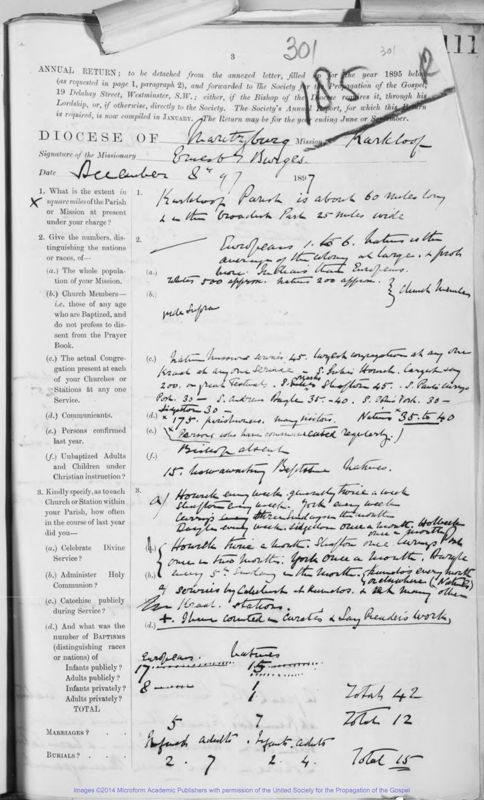 301
301
111
3
185
R
ANNUAL RETURN; to be detached from the annexed letter, filled for the year 1895
(as requested in page 1, paragraph 2), and forwarded to the Society for the Propagation of the Gospel,
19 Delahay Street, Westminster, S.W.; either, if the Bishop of the requires it, through his
Lordship, or, if otherwise, directly to the Society. The Society's Annual Report, for which this Return
is required, is now compiled in JANUARY. The Return may be for the year ending June or September.
DIOCESE OF Maritzburg Mission Karkloof
Signature of the Missionary Ernest Burges.
Date December 8th 97 1897
1. What is the extent in
square miles of the Parish
or Mission at present
under your charge?
1.
Karkloof Parish is about 60 miles long
& in the broadest Part 25 miles wide
2. Give the numbers, dis-
tinguishing the nations
or races, of—
(a.) The whole popula-
tion of your Mission.
(b.) Church Members—
i.e. those of any age
who are Baptized, and
do not profess to dis-
sent from the Prayer
Book.
(c.) The actual Congre-
gation present at each
of your Churches or
Stations at any one
Service.
(d.) Communicants.
(e.) Persons confirmed
last year.
(f.) Unbaptized Adults
and Children under
Christian instruction?
2.
Europeans 1. to 6. Natives is the
average of the colony at large. &
(a.) more Natives than Europeans.
Whites 500 approx. Natives 200 approx. } Church Members
(b.)
vide supra
(c.) Native 45. largest congregation at any one
Kraal at any one service. S. Johns Howick. largest say
200. on great Festivals. S. Shafton 45. S. Pauls Curry's
Post. 30 — S. Andrews Dargle 35.-40. S. Johns York. 30 —
Lidgetton 30 —
(d.) × 175. parishioners. many visitors. Natives 35 to 40
(e.) (× Persons who have communicated regularly.)
Bishop absent
(f.)
15. now awaiting Baptism Natives.
3. Kindly specify, as to each
Church or Station within
your Parish, how often
in the course of last year
did you—
(a.) Celebrate Divine
Service?
(b.) Administer Holy
Communion?
(c.) Catechise publicly
during Service?
(d.) And what was the
number of BAPTISMS
(distinguishing races
or nations) of
Infants publicly?
Adults publicly?
Infants privately?
Adults privately?
TOTAL
MARRIAGES?
BURIALS?
3.
a) Howick every week generally twice a week
Shafton every week. York every week
Currys three Sundays in the month
Dargle every week. Lidgetton once a month.
once a month
(b) Howick twice a month. Shafton once Currys Post
once in two months. York once a month. Dargle
(b.) every 5th Sunday in the month. (Natives)
services by Catechist at & at many other
Kraal stations.
(d.) + I have counted in Curate's & Lay Reader's work,
Europeans. Natives
17 15
8 1 Total 42
5 7 Total 12
Infants adults. Infants. adults
2. 7 2. 4. Total 15
Images ©2014 Microform Academic Publishers with permission of the United Society for the Propagation of the Gospel